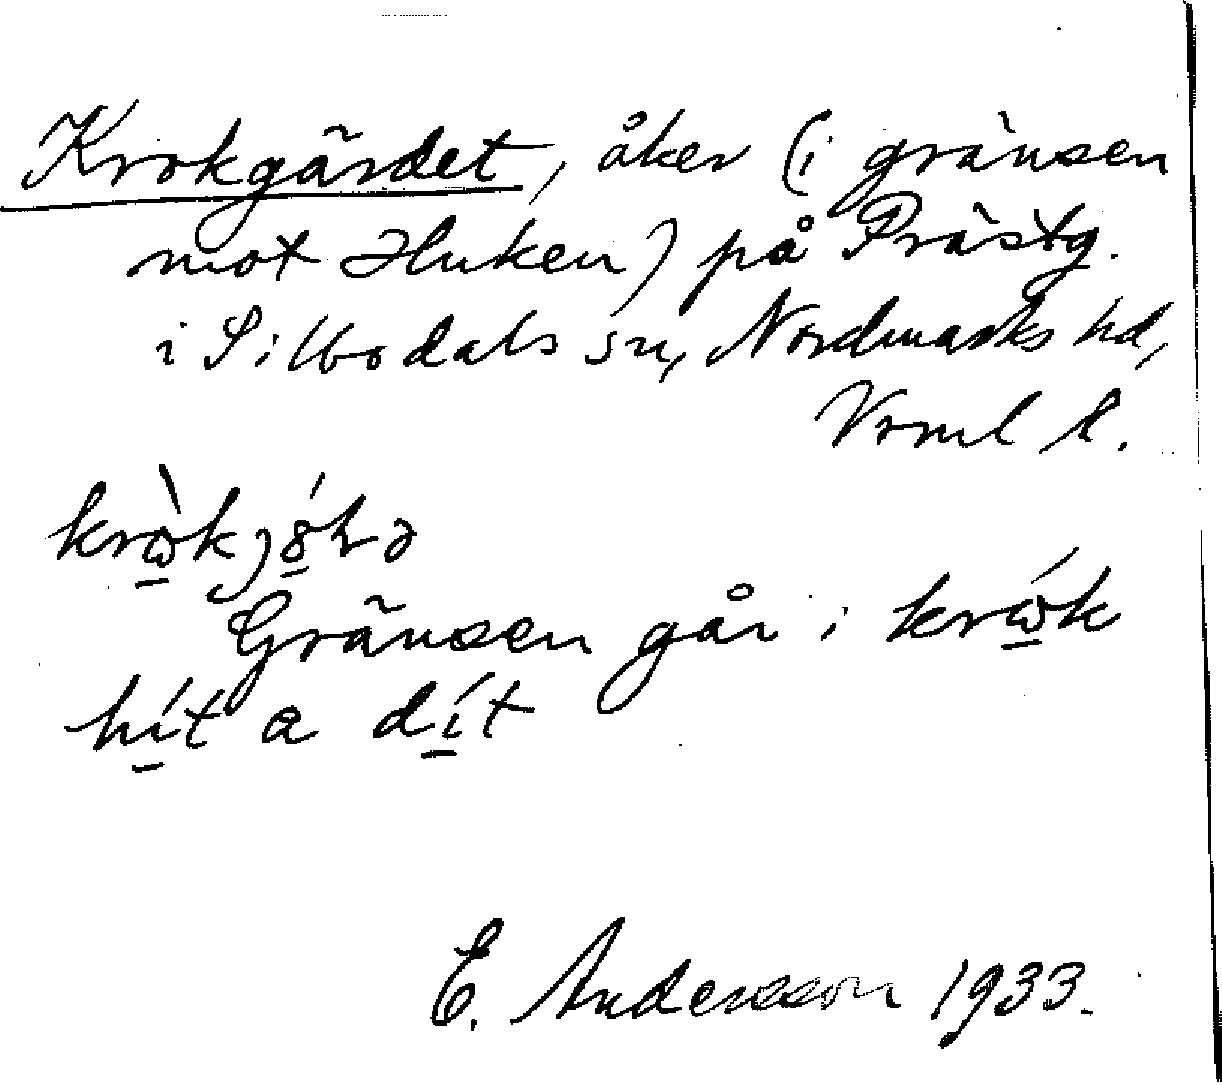 Krokgärdet, åker (i gränsen
mot Huken) på Prästg.
i Silbodals sn, Nordmarks hd,
Vrml l.
Gränsen går i krώ̲k
hí̲t a dí̲t
E. Andersson 1933.